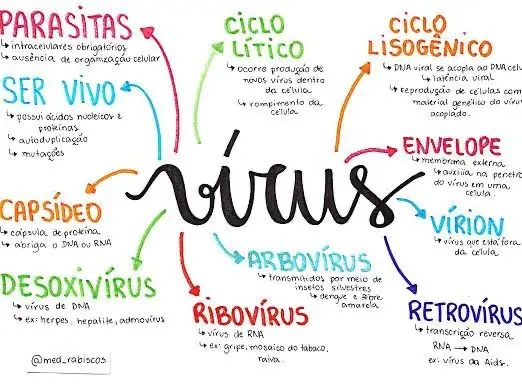 PARASITAS
↳ intracelulares obrigatórios
↳ ausência de organização celular
CICLO
LÍTICO
↳ ocorre produção de
novos vírus dentro
da célula
↳ rompimento da
célula
CICLO
LISOGÊNICO
↳ DNA viral se acopla ao DNA cel
↳ latência viral
↳ reprodução de células com
material genético do víru
acoplado.
SER VIVO
↳ possui ácidos nucleicos e
proteínas
↳ autoduplicação
↳ mutações
vírus
ENVELOPE
↳ membrana externa
↳ auxilia na penetra
do vírus em uma
célula.
CAPSÍDEO
↳ cápsula de proteína
↳ abriga o DNA ou RNA
VÍRION
↳ vírus que está fora
da célula
ARBOVÍRUS
↳ transmitidos por meio de
insetos silvestres
↳ dengue e febre
amarela
DESOXIVÍRUS
↳ vírus de DNA
↳ ex: herpes, hepatite, adenovírus
RIBOVÍRUS
↳ vírus de RNA
↳ ex: gripe, mosaico do tabaco,
raiva.
RETROVÍRUS
↳ transcrição reversa
RNA → DNA
ex: vírus da Aids.
@med_rabiscos